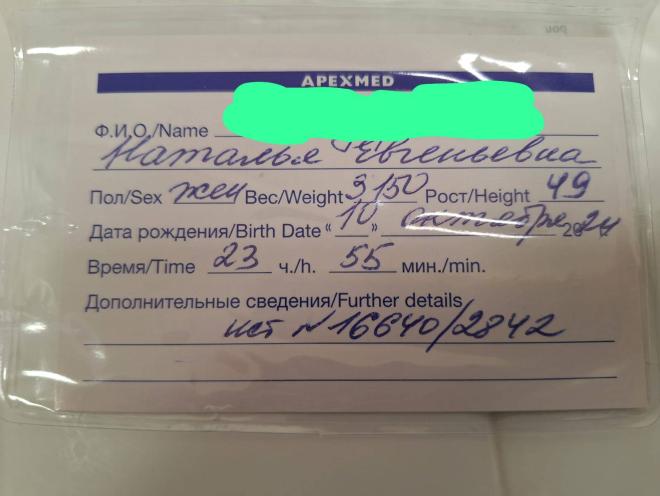 APEXMED
Ф.И.О./Name
Наталья Евгеньевна
Пол/Sex жен Вес/Weight 3,150 Рост/Height 49
Дата рождения/Birth Date "10" октября 2024
Время/Time 23 ч./h. 55 мин./min.
Дополнительные сведения/Further details
ист N16640/2842